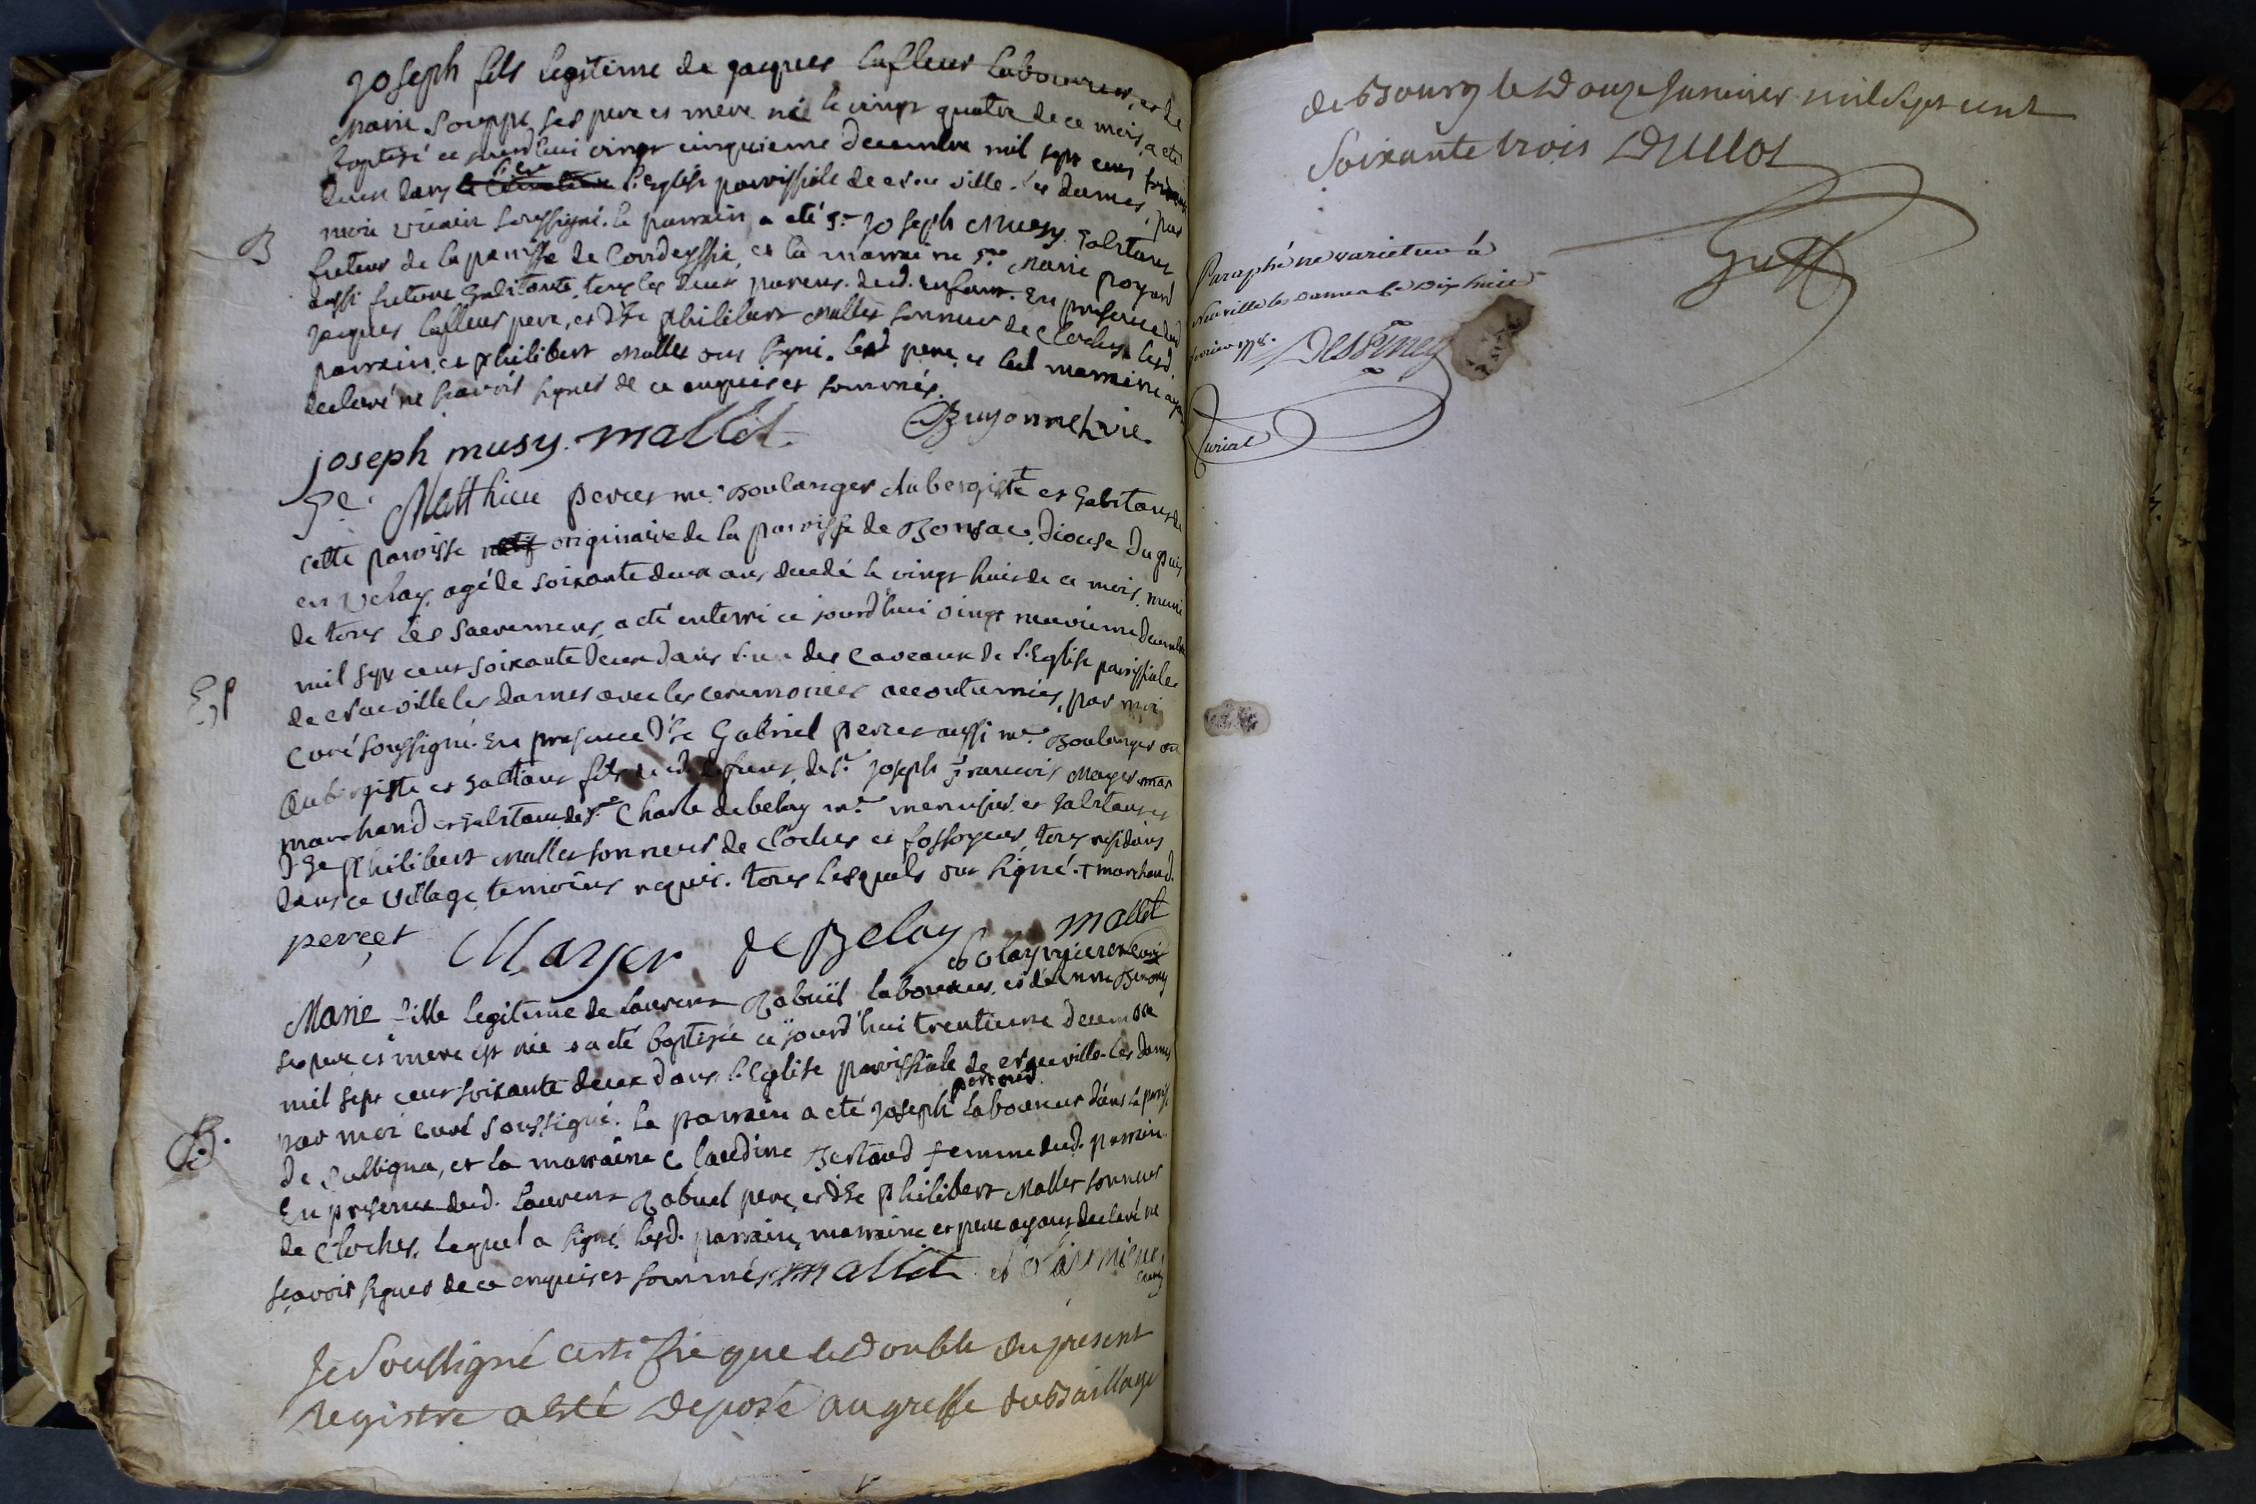 Joseph fils legitime de jacques Lafleur Laboureur, et de
Marie Souppe ses pere et mere né le vingt quatre de ce mois, a eté
baptisé ce jourdhui vingt cinquieme decembre mil sept cens soixante
deux dans l'Eglise paroissiale de neuville les dames, par
moi vicaire soussigné. le parrain a eté Sr joseph Musy habitant
B
futeur de la paroisse de Condeyssia, et la marraine Marie poyard
aussi habitante, tous les deux parens dud. enfant. En presence dud
jacques Lafleur pere, et d'he philibert Mallet sonneur de cloches lesd
parrain, et philibert Mallet ont signé. led pere, et lad marraine ayant
declaré ne sçavoir signer de ce enquis et sommés.
joseph musy. mallet. Buyonnet, vic.
Sr. Matthieu percet me. Boulanger Aubergiste et habitant de
cette paroisse originaire de la paroisse de Bonsac, diocese du puis
en velay, agé de soixante deux ans decedé le vingt huit de ce mois, muni
de tous les sacremens, a eté enterré ce jourd'hui vingt neuvieme decembre
mil sept cent soixante deux dans l'un des caveaux de l'Eglise paroissiale
Ep
de neuville les dames avec les ceremonies accoutumées, par moi
Curé soussigné. En presence d'he Gabriel percet aussi me. Boulanger et
Aubergiste et habitant fils dud defunt, de Sr. joseph francois Mayer
marchand et habitant, de Sr Charle debelay me. menusier et habitant et
d'he philibert Mallet sonneur de cloches et fossoyeur, tous residans
dans ce village, temoins requis. tous lesquels ont signé. + marchand.
percet Mayer de Belay mallet
Marie fille legitime de Laurent Rabuël laboureur, et de
ses pere et mere est née et a eté baptisée ce jourd'hui trentieme decembre
mil sept cent soixante deux dans l'Eglise paroissiale de neuville-les dames
par moi curé soussigné. le parrain a eté joseph perret laboureur dans la paroisse
B.
de Sulligna, et la marraine Claudine Bertaud femme dud. parrain.
En presence dud. Laurent Rabuel pere, et d'he philibert Mallet sonneur
de cloches, lequel a signé. lesd. parrain, marraine et pere ayant declaré ne
sçavoir signer de ce enquis et sommés. mallet
Je Soussigné certifie que le Double du present
Registre a esté Deposé au greffe du Baillage
de Bourg le Douze Janvier mil sept cent
Soixante trois Dullot
Paraphé ne varietur á
Neuville les dames le dix huit
fevrier 1778.